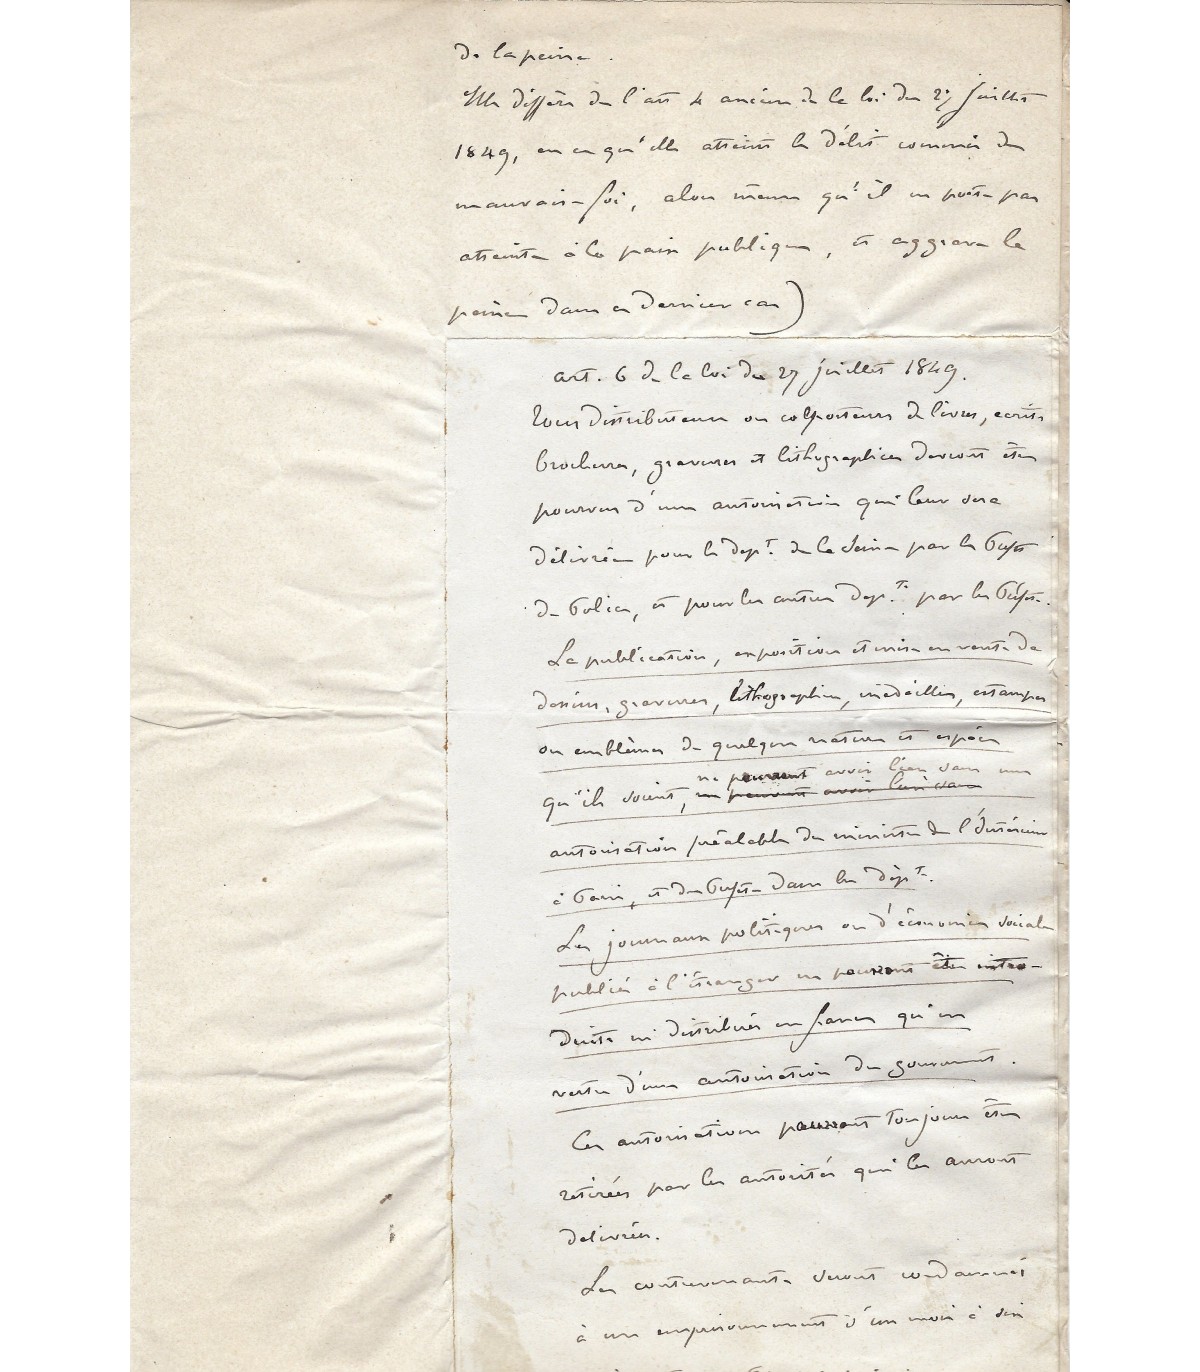 de la peine.
Elle diffère de l'art 4 ancien de la loi du 27 juillet
1849, en ce qu'elle atteint le délit commis de
mauvaise foi, alors même qu'il ne porte pas
atteinte à la paix publique, et aggrave la
peine dans ce dernier cas)
art. 6 de la loi du 27 juillet 1849.
Tous distributeurs ou colporteurs de livres, ecrits
brochures, gravures et lithographies devront être
pourvus d'une autorisation qui leur sera
délivrée pour le dept. de la Seine par le Préfet
de Police, et pour les autres dep.ts par les Préfets.
La publication, exposition et mise en vente de
dessins, gravures, lithographies, médailles, estampes
ou emblèmes de quelque nature et espèce
ne pourront avoir lieu sans une
qu'ils soient, ne pourront avoir lieu sans
autorisation préalable du ministre de l'Intérieur
à Paris, et du Préfet dans les dépts.
Les journaux politiques ou d'économie sociale
publiés à l'étranger ne pourront être intro-
duits ni distribués en france qu'en
vertu d'une autorisation du gouvernement.
Ces autorisations pourront toujours être
retirées par les autorités qui les auront
delivrées.
Les contrevenants seront condamnés
à un emprisonnement d'un mois à six